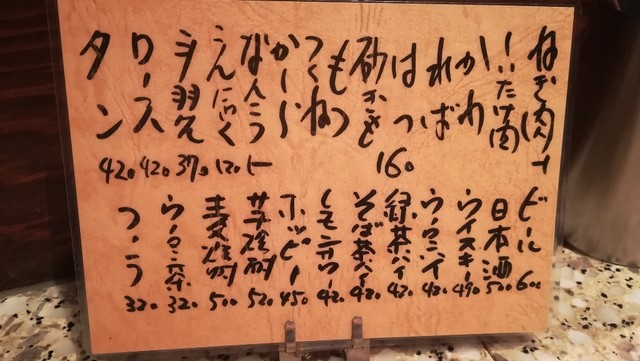 ねぎ肉
しいたけ肉
かわ
ればー
はつ
砂ぎも
もつ
つくね
かしら
なんこつ
160
にんにく 120
手羽先 370
ロース 420
タン 420
ビール 600
日本酒 500
ウイスキー
ウーロンハイ 420
緑茶ハイ 420
そば茶ハイ 420
レモンサワー 420
ホッピー 450
焼酎 520
焼酎 500
ウーロン茶 320
コーラ 320